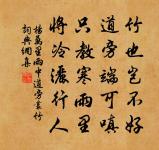 竹也豈不好
道旁端可嗔
只教寒雨里
將冷灑行人
楊萬里雨中道旁叢竹
詞典網集